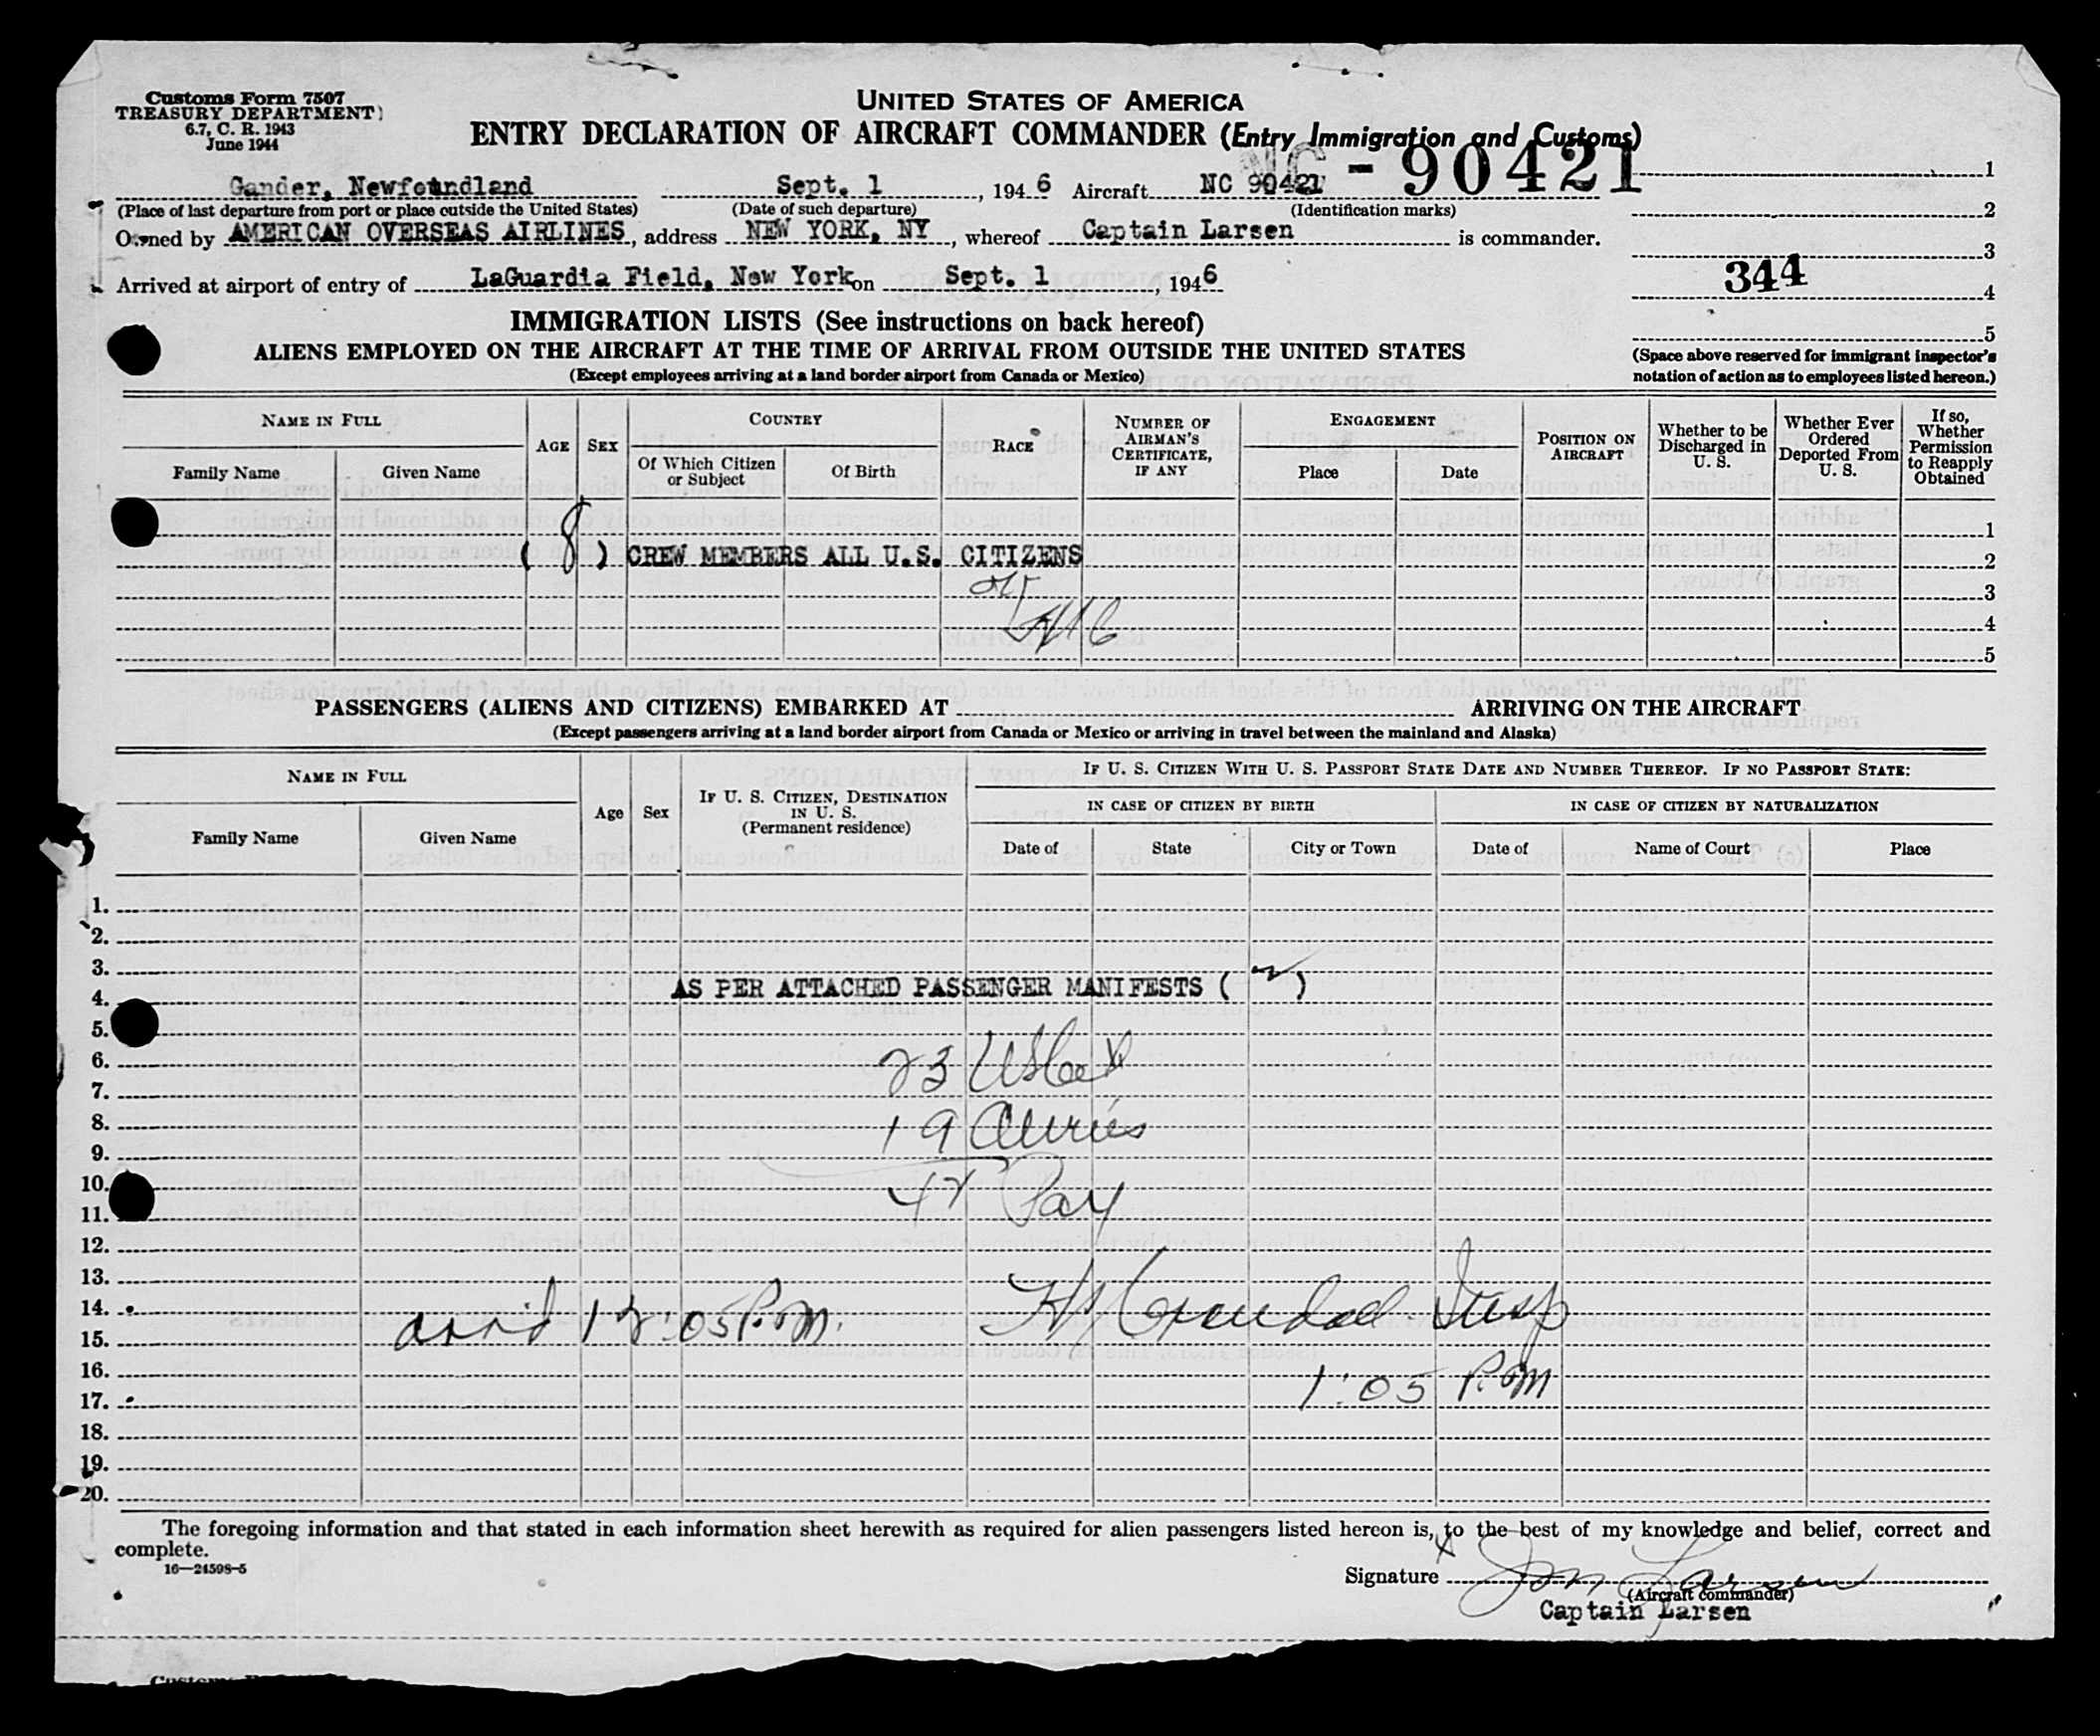 Customs Form 7507
TREASURY DEPARTMENT
6.7, C. R. 1943
June 1944
UNITED STATES OF AMERICA
ENTRY DECLARATION OF AIRCRAFT COMMANDER (Entry Immigration and Customs)
NC - 90421
Gander, Newfoundland Sept. 1, 1946 Aircraft NC 90421
(Place of last departure from port or place outside the United States) (Date of such departure) (Identification marks)
Owned by AMERICAN OVERSEAS AIRLINES, address NEW YORK, NY, whereof Captain Larsen is commander.
Arrived at airport of entry of LaGuardia Field, New York on Sept. 1, 1946
1
2
3
344 4
5
(Space above reserved for immigrant inspector's
notation of action as to employees listed hereon.)
IMMIGRATION LISTS (See instructions on back hereof)
ALIENS EMPLOYED ON THE AIRCRAFT AT THE TIME OF ARRIVAL FROM OUTSIDE THE UNITED STATES
(Except employees arriving at a land border airport from Canada or Mexico)
NAME IN FULL
Family Name Given Name
AGE
SEX
COUNTRY
Of Which Citizen or Subject
Of Birth
RACE
NUMBER OF AIRMAN'S CERTIFICATE, IF ANY
ENGAGEMENT
Place Date
POSITION ON AIRCRAFT
Whether to be Discharged in U. S.
Whether Ever Ordered Deported From U. S.
If so, Whether Permission to Reapply Obtained
1
( 8 ) CREW MEMBERS ALL U.S. CITIZENS 2
3
4
5
PASSENGERS (ALIENS AND CITIZENS) EMBARKED AT ARRIVING ON THE AIRCRAFT
(Except passengers arriving at a land border airport from Canada or Mexico or arriving in travel between the mainland and Alaska)
NAME IN FULL
Family Name Given Name
Age
Sex
IF U. S. CITIZEN, DESTINATION IN U. S.
(Permanent residence)
IF U. S. CITIZEN WITH U. S. PASSPORT STATE DATE AND NUMBER THEREOF. IF NO PASSPORT STATE:
IN CASE OF CITIZEN BY BIRTH IN CASE OF CITIZEN BY NATURALIZATION
Date of State City or Town Date of Name of Court Place
1.
2.
3.
AS PER ATTACHED PASSENGER MANIFESTS ( 2 )
4.
5.
6. 23
7.
8. 19
9.
10. 42
11.
12.
13.
14. arr'd 12:05 P.M. Insp
15.
16. 1:05 P.M
17.
18.
19.
20.
The foregoing information and that stated in each information sheet herewith as required for alien passengers listed hereon is, to the best of my knowledge and belief, correct and
complete.
16—24598-5
Signature X Jon Larsen
(Aircraft commander)
Captain Larsen